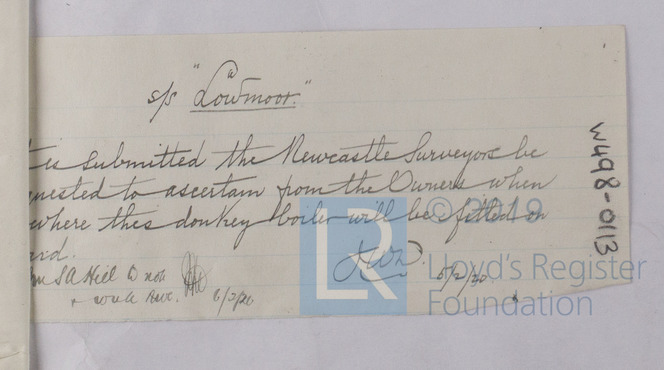 s/s "Lowmoor."
t is submitted the Newcastle Surveyors be
quested to ascertain from the Owners when
where this donkey boiler will be fitted on
ard.
5/2/30
6/2/30
W498-0113
© 2019
LR
Lloyd's Register
Foundation